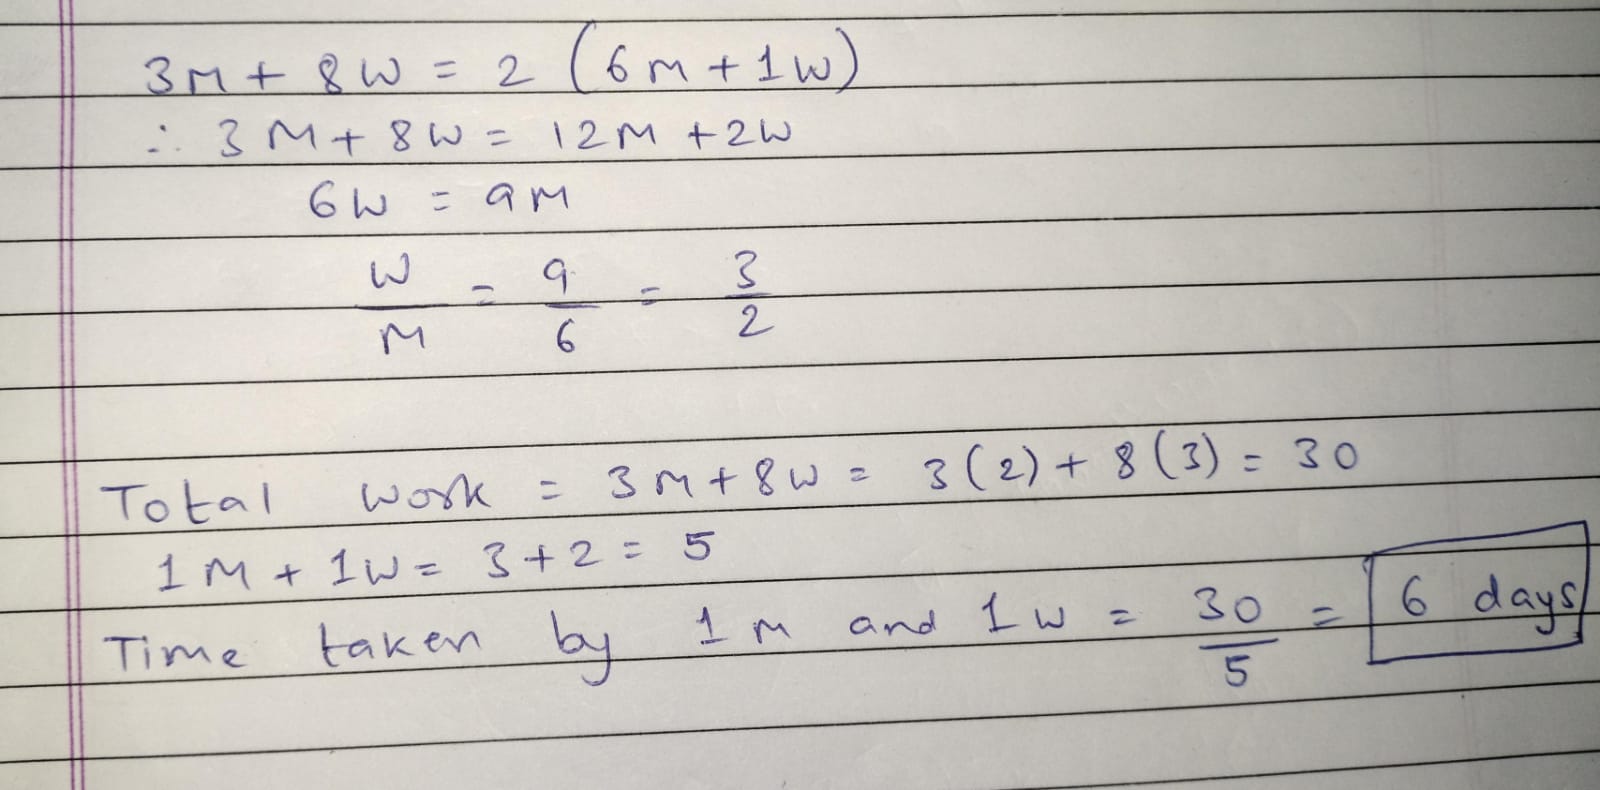 3M + 8W = 2 (6M + 1W)
∴ 3M + 8W = 12M + 2W
6W = 9M
W/M = 9/6 = 3/2
Total work = 3M + 8W = 3(2) + 8(3) = 30
1M + 1W = 3 + 2 = 5
Time taken by 1M and 1W = 30/5 = 6 days